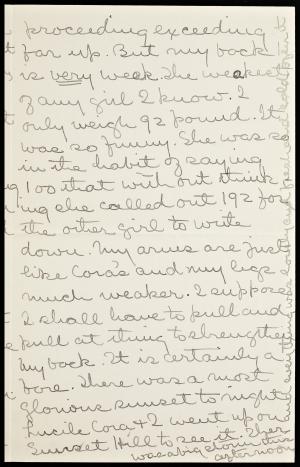 proceeding exceeding
far up. But my back
is very weak. She weakest
of any girl I know. I
only weigh 92 pound. It
was so funny. She was so
in the habit of saying
100 that without think
ing she called out 192 for
the other girl to write
down. My arms are just
like Cora's and my legs
much weaker. I suppose
I shall have to pull and
pull at thing to strengthen
my back. It is certainly a
bore. There was a most
glorious sunset to night
Lucile Cora & I went up on
Sunset Hill to see it. There
was a big shower this
afternoon
and everything was